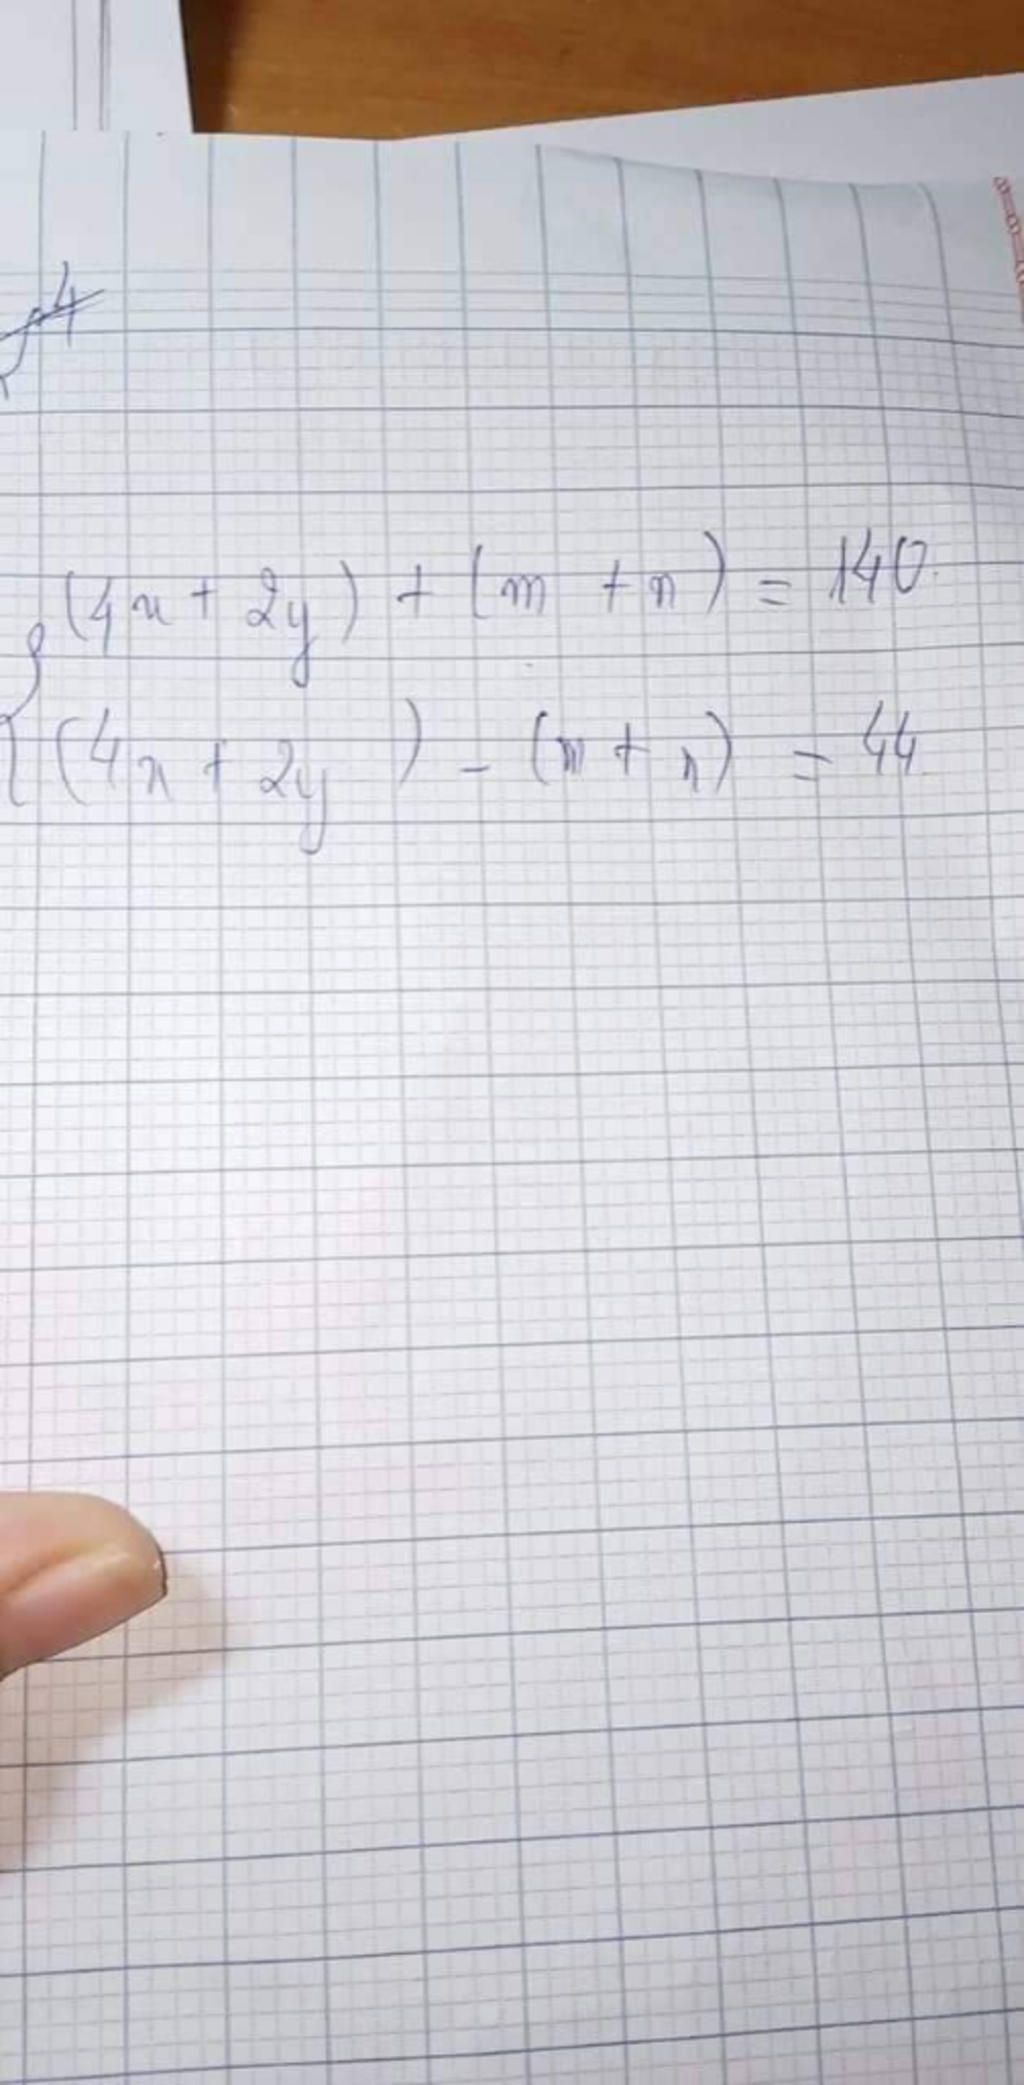 4
(4x + 2y) + (m + n) = 140
(4x + 2y) - (m + n) = 44